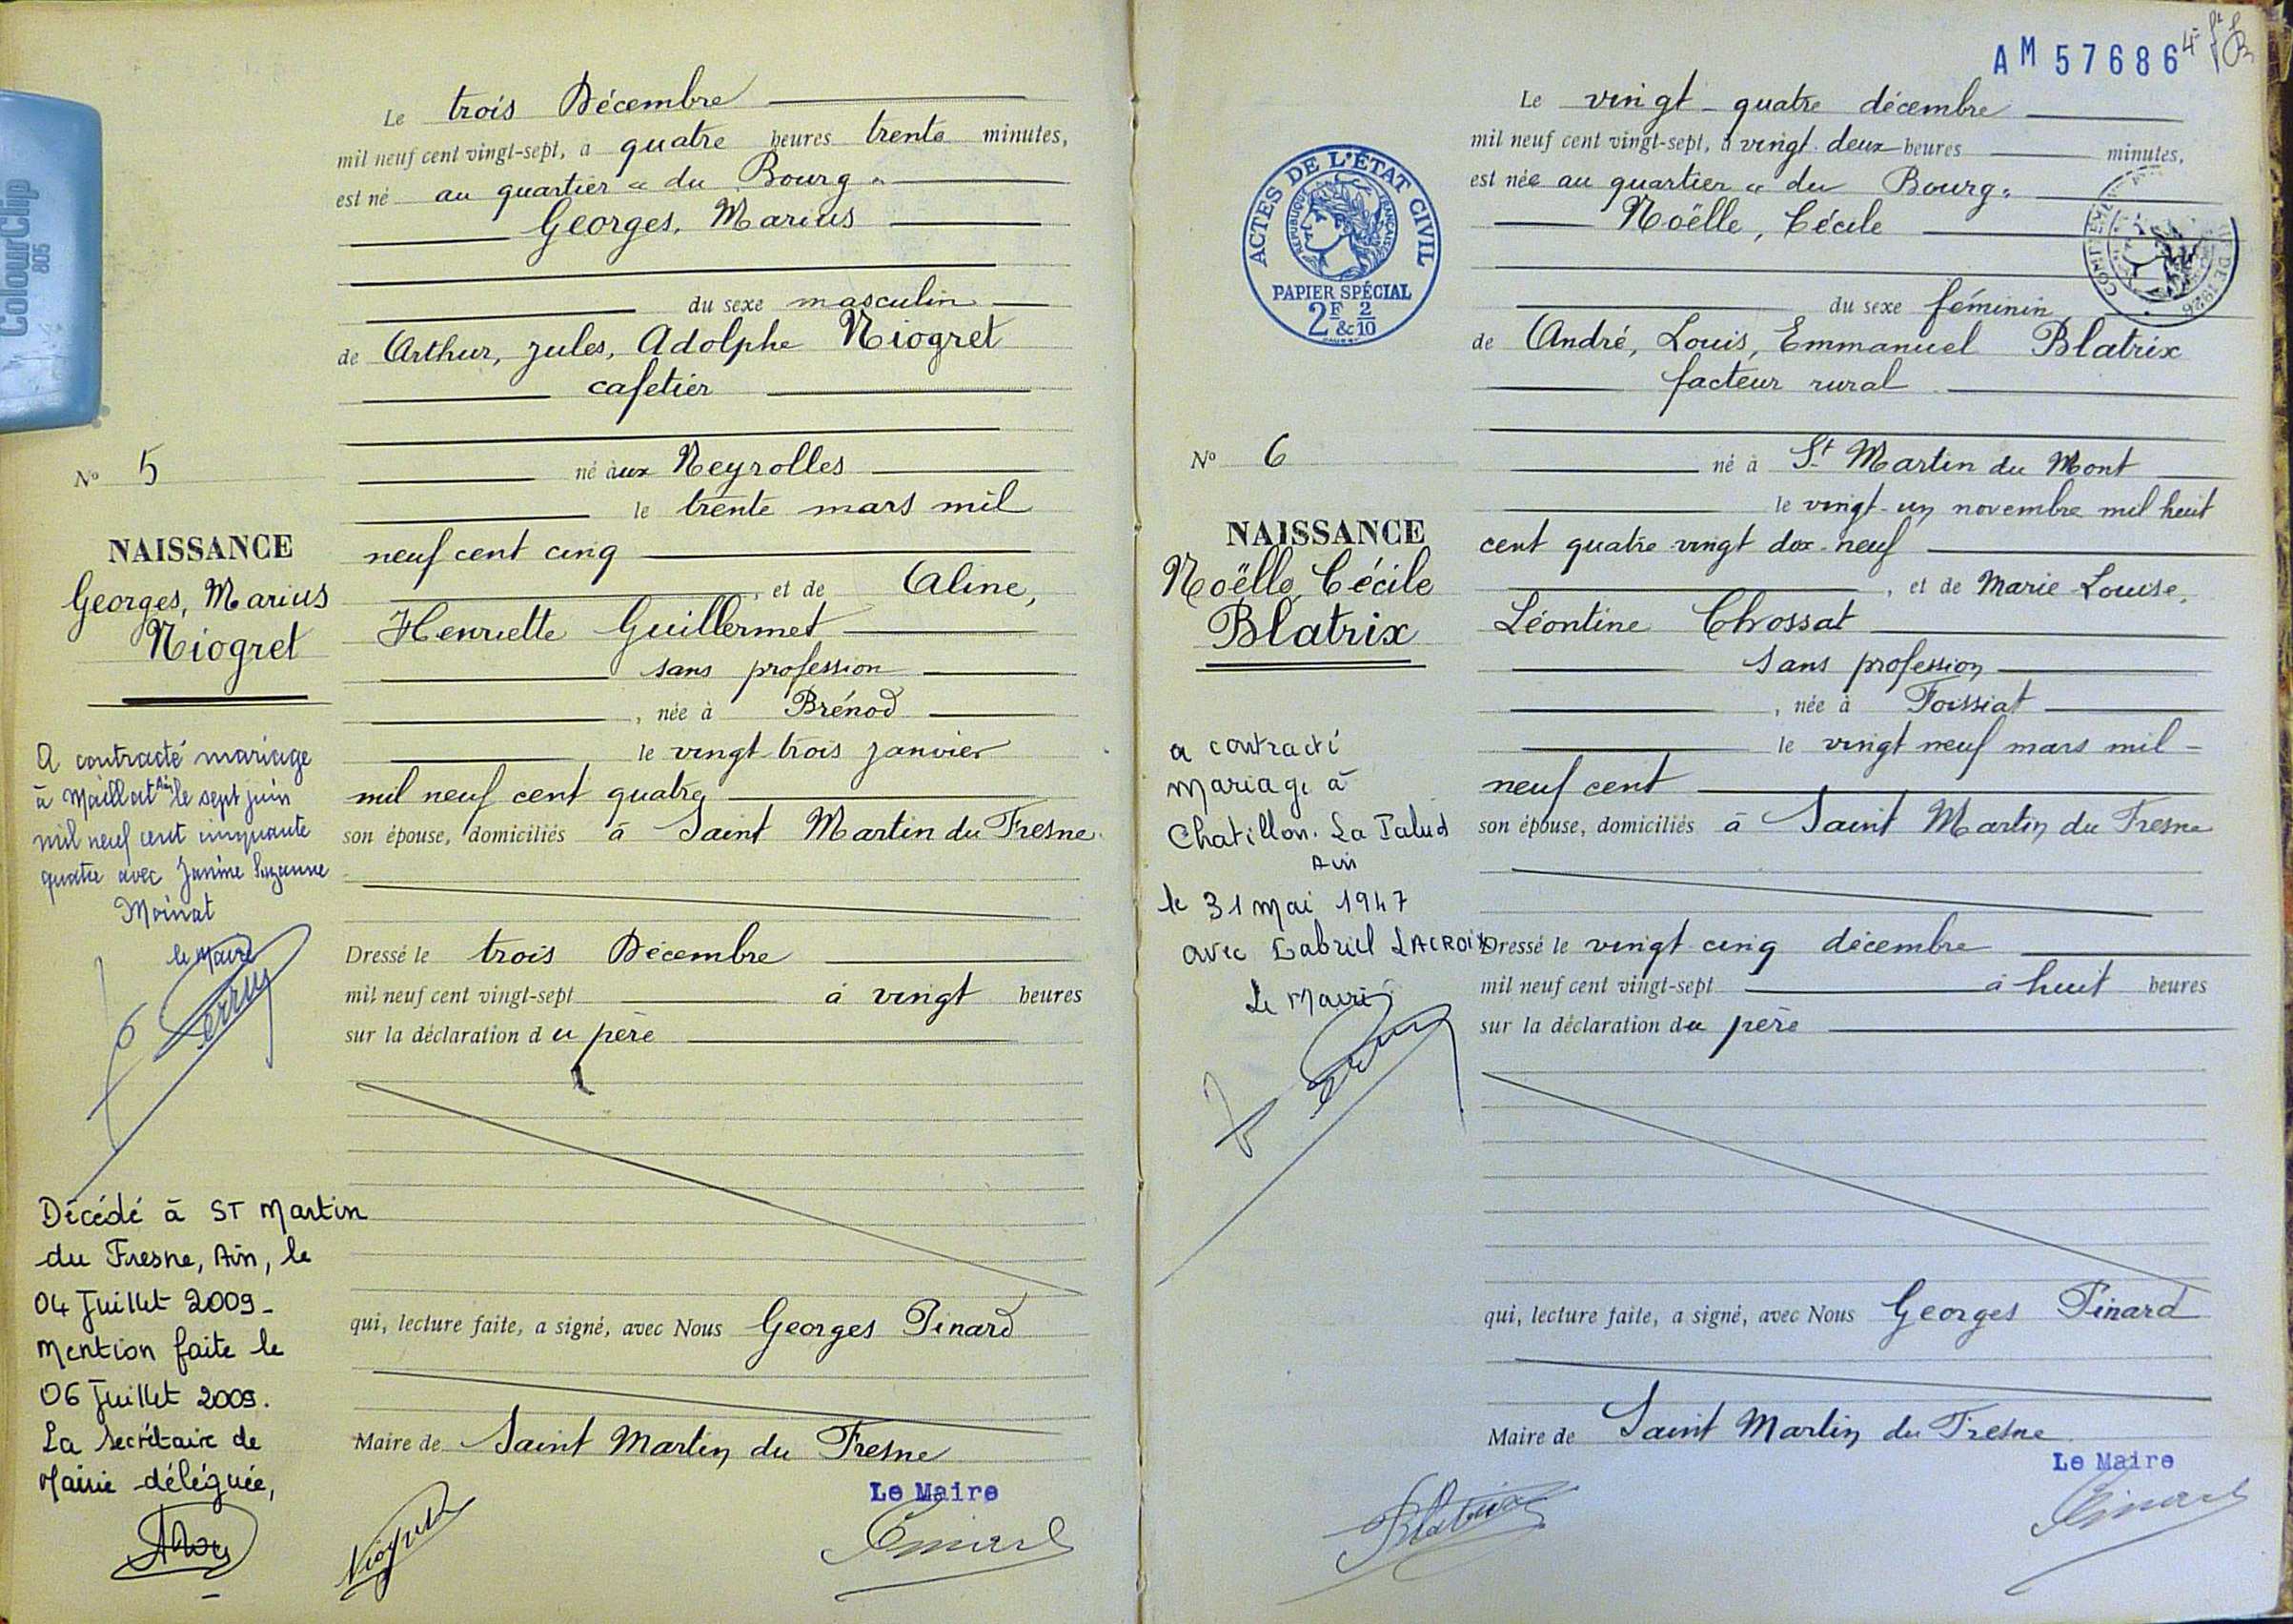 ColourClip
805
Le trois Décembre
mil neuf cent vingt-sept, à quatre heures trente minutes,
est né au quartier « du Bourg »
Georges, Marius
du sexe masculin
de Arthur, Jules, Adolphe Niogret
cafetier
né aux Neyrolles
le trente mars mil
neuf cent cinq
, et de Aline,
Henriette Guillermet
sans profession
, née à Brénod
le vingt trois janvier
mil neuf cent quatre
son épouse, domiciliés à Saint Martin du Fresne
Dressé le trois Décembre
mil neuf cent vingt-sept à vingt heures
sur la déclaration du père
qui, lecture faite, a signé, avec Nous Georges Pinard
Maire de Saint Martin du Fresne
Le Maire
Niogret
Pinard
No 5
NAISSANCE
Georges, Marius
Niogret
A contracté mariage
à Maillat Ain le sept juin
mil neuf cent cinquante
quatre avec Janine Suzanne
Moinat
le Maire
Décédé à ST Martin
du Fresne, Ain, le
04 Juillet 2009 -
Mention faite le
06 Juillet 2009.
La Secrétaire de
Mairie déléguée,
AM 57686
ACTES DE L'ÉTAT CIVIL
RÉPUBLIQUE FRANÇAISE
PAPIER SPÉCIAL
2F & 2/10
Le vingt-quatre décembre
mil neuf cent vingt-sept, à vingt deux heures minutes,
est née au quartier « du Bourg »
Noëlle, Cécile
du sexe féminin
de André, Louis, Emmanuel Blatrix
facteur rural
né à St Martin du Mont
le vingt-un novembre mil huit
cent quatre vingt dix-neuf
, et de Marie Louise,
Léontine Chossat
sans profession
, née à Foissiat
le vingt neuf mars mil-
neuf cent
son épouse, domiciliés à Saint Martin du Fresne
Dressé le vingt cinq décembre
mil neuf cent vingt-sept à huit heures
sur la déclaration du père
qui, lecture faite, a signé, avec Nous Georges Pinard
Maire de Saint Martin du Fresne
Le Maire
Blatrix
Pinard
No 6
NAISSANCE
Noëlle, Cécile
Blatrix
a contracté
mariage à
Chatillon. La Palud
Ain
le 31 mai 1947
avec Gabriel LACROIX
Le Maire